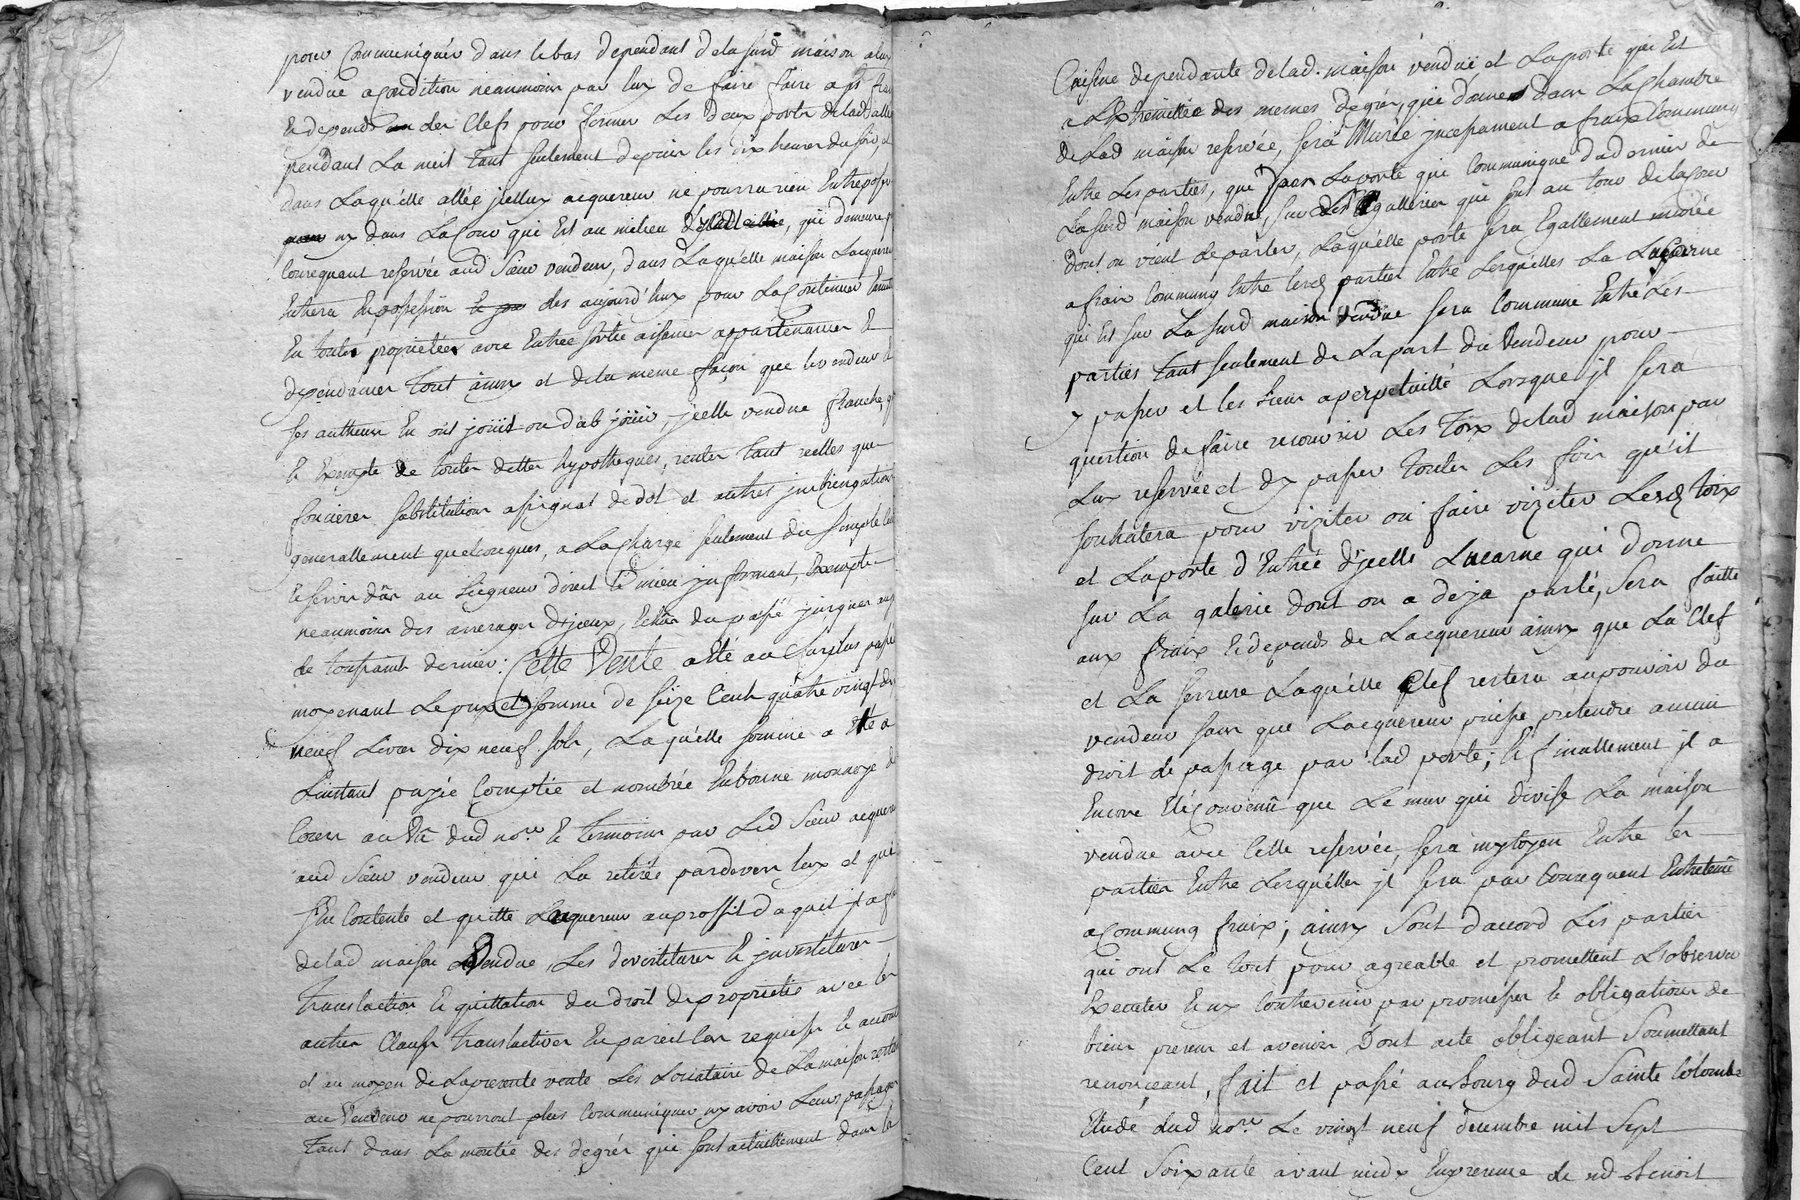 pour Communiquér dans le bas dependant de la susd maison a luy
vendue a condition neanmoins par luy de faire faire a ses frais
Et depends des Clefs pour fermer Les deux portes de lad allée
pendant La nuit tant seulement depuis les dix heures du soir, et
dans Laquelle allée jcelluy acquereur ne pourra rien Entreposer
ny dans La Cour qui Est au milieu d'jcelle, qui demeure par
Consequant reservée aud Sieur vendeur, dans Laquelle maison Lacquereur
Entrera En possession des aujourd'huy pour La Continuer
En toutes proprietées avec Entrée sortie aisances appartenances Et
dépendances tout ainsy et de la meme façon que le vendeur et
ses autheurs En ont joüit ou dub joüir, jcelle vendue franche, quitte
Et Exempte de toutes dettes hypotheques, rentes tant reelles que
foncieres substitutions assignat de dot et autres jmbrigations
generallement quelconques, a La Charge seulement du simple
Et servis dûs au Seigneur direct Le mieux jnformant, Exempte
neanmoins des arrerages d'jceux, Echus du passé jusques au jour
de toussaint dernier: Cette Vente a Eté au surplus passée
moyenant Le prix et somme de seize Cent quatre vingt dix
neuf Livres dix neuf sols, Laquelle somme a eté a
Linstant payée Comptée et nombrée En bonne monnoye de
Cours au vû dud no.re Et temoins par Led Sieur acquereur
aud Sieur vendeur qui La retirée pardevers luy et qui
s'En Contente et quitte Lacquereur au proffit d'aquel jl a fait
de lad maison Vendue Les devestitures Et jnvestitures
translaction Et quittation du droit de proprietés avec les
autres Clauses translactives En pareil Cas requises Et accoutumées
et au moyen de La presente vente Les Locataire de La maison restée
au Vendeur ne pourront plus Communiquer ny avoir Leurs passages
tant dans La montée des degrés qui sont actuellement dans la
Cuisine dependante de lad. maison vendue et La porte qui Est
a L'Extremittée des memes degrés, qui donnent dans La Chambre
de Lad maison reservée, sera Murée jncessament a fraix Communs
Entre Les parties, que par La porte qui Communique du dernier de
La susd maison vendue, sur des galleries qui sont au tour de la Cour
dont on vient de parler, Laquelle porte sera Egallement murée
a fraix Communs Entre lesd parties Entre Lesquelles La Lucarne
qui Est sur La susd maison vendue sera Commune Entre Les
parties tant seulement de La part du Vendeur pour
y passer et les siens a perpetuitté Lorsque jl sera
question de faire recouvrir Les Toix de lad maison par
Luy reservée et d'y passer toutes Les fois qu'il
souhaitera pour viziter ou faire viziter Lesd toix
et La porte d'Entrée d'jcelle Lucarne qui donne
sur La galerie dont on a déja parlé, sera faitte
aux fraix Et depends de Lacquereur ainsy que La Clef
et La serrure Laquelle Clef restera au pouvoir du
vendeur sans que Lacquereur puisse pretendre aucun
droit de passage par lad porte; Et finallement jl a
Encore Eté Convenû que Le mur qui divise La maison
vendue avec Celle reservée, sera mytoyen Entre les
parties Entre Lesquelles jl sera par Consequent Entretenû
a Communs fraix; ainsy Sont d'accord Les parties
qui ont Le tout pour agreable et promettent L'observer
Executer Et ny Contrevenir par promesses Et obligations de
biens presens et avenir Dont acte obligeant Soumettant
renonceant, fait et passé au bourg dud Sainte Colombe
Etude dud no.re Le vingt neuf decembre mil Sept
Cent Soixante avant midy En presence de